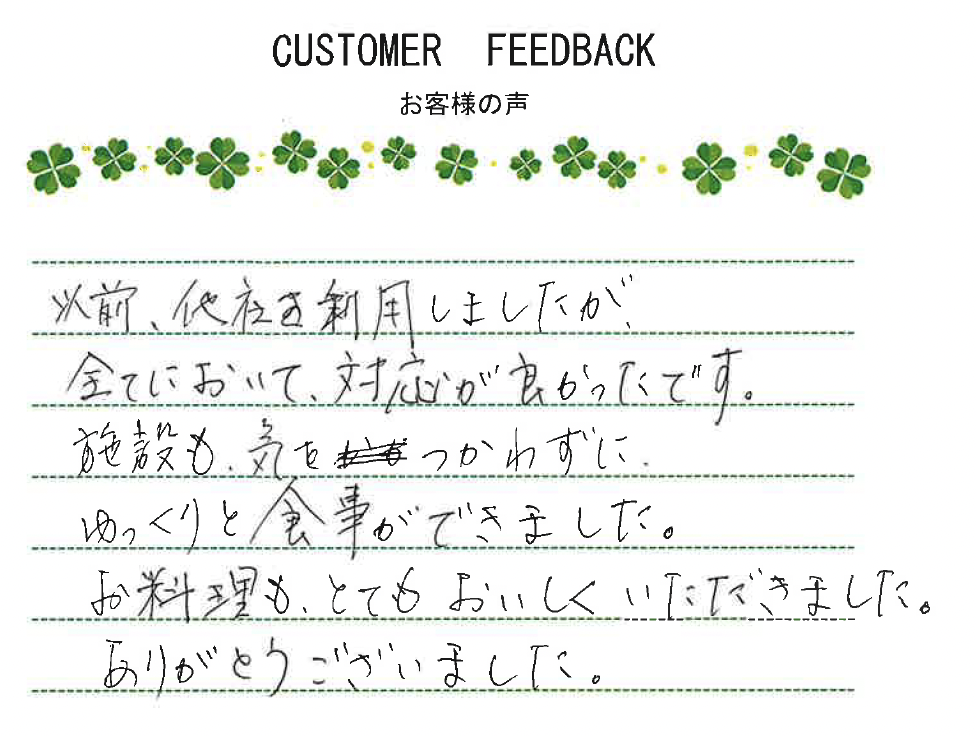 CUSTOMER FEEDBACK
お客様の声
以前、他社を利用しましたが、
全てにおいて、対応が良かったです。
施設も、気をつかわずに、
ゆっくりと食事ができました。
お料理も、とてもおいしくいただきました。
ありがとうございました。